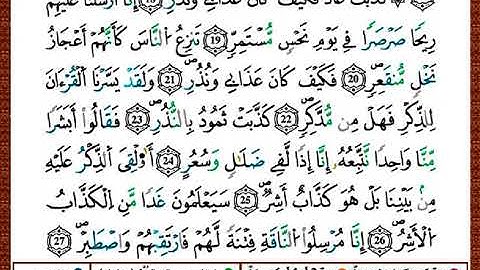 كَذَّبَتۡ عَادٞ فَكَيۡفَ كَانَ عَذَابِي وَنُذُرِ ١٨ إِنَّآ أَرۡسَلۡنَا عَلَيۡهِمۡ
رِيحٗا صَرۡصَرٗا فِي يَوۡمِ نَحۡسٖ مُّسۡتَمِرّٖ ١٩ تَنزِعُ ٱلنَّاسَ كَأَنَّهُمۡ أَعۡجَازُ
نَخۡلٖ مُّنقَعِرٖ ٢٠ فَكَيۡفَ كَانَ عَذَابِي وَنُذُرِ ٢١ وَلَقَدۡ يَسَّرۡنَا ٱلۡقُرۡءَانَ
لِلذِّكۡرِ فَهَلۡ مِن مُّدَّكِرٖ ٢٢ كَذَّبَتۡ ثَمُودُ بِٱلنُّذُرِ ٢٣ فَقَالُوٓاْ أَبَشَرٗا
مِّنَّا وَٰحِدٗا نَّتَّبِعُهُۥٓ إِنَّآ إِذٗا لَّفِي ضَلَٰلٖ وَسُعُرٍ ٢٤ أَءُلۡقِيَ ٱلذِّكۡرُ عَلَيۡهِ
مِنۢ بَيۡنِنَا بَلۡ هُوَ كَذَّابٌ أَشِرٞ ٢٥ سَيَعۡلَمُونَ غَدٗا مَّنِ ٱلۡكَذَّابُ
ٱلۡأَشِرُ ٢٦ إِنَّا مُرۡسِلُواْ ٱلنَّاقَةِ فِتۡنَةٗ لَّهُمۡ فَٱرۡتَقِبۡهُمۡ وَٱصۡطَبِرۡ ٢٧